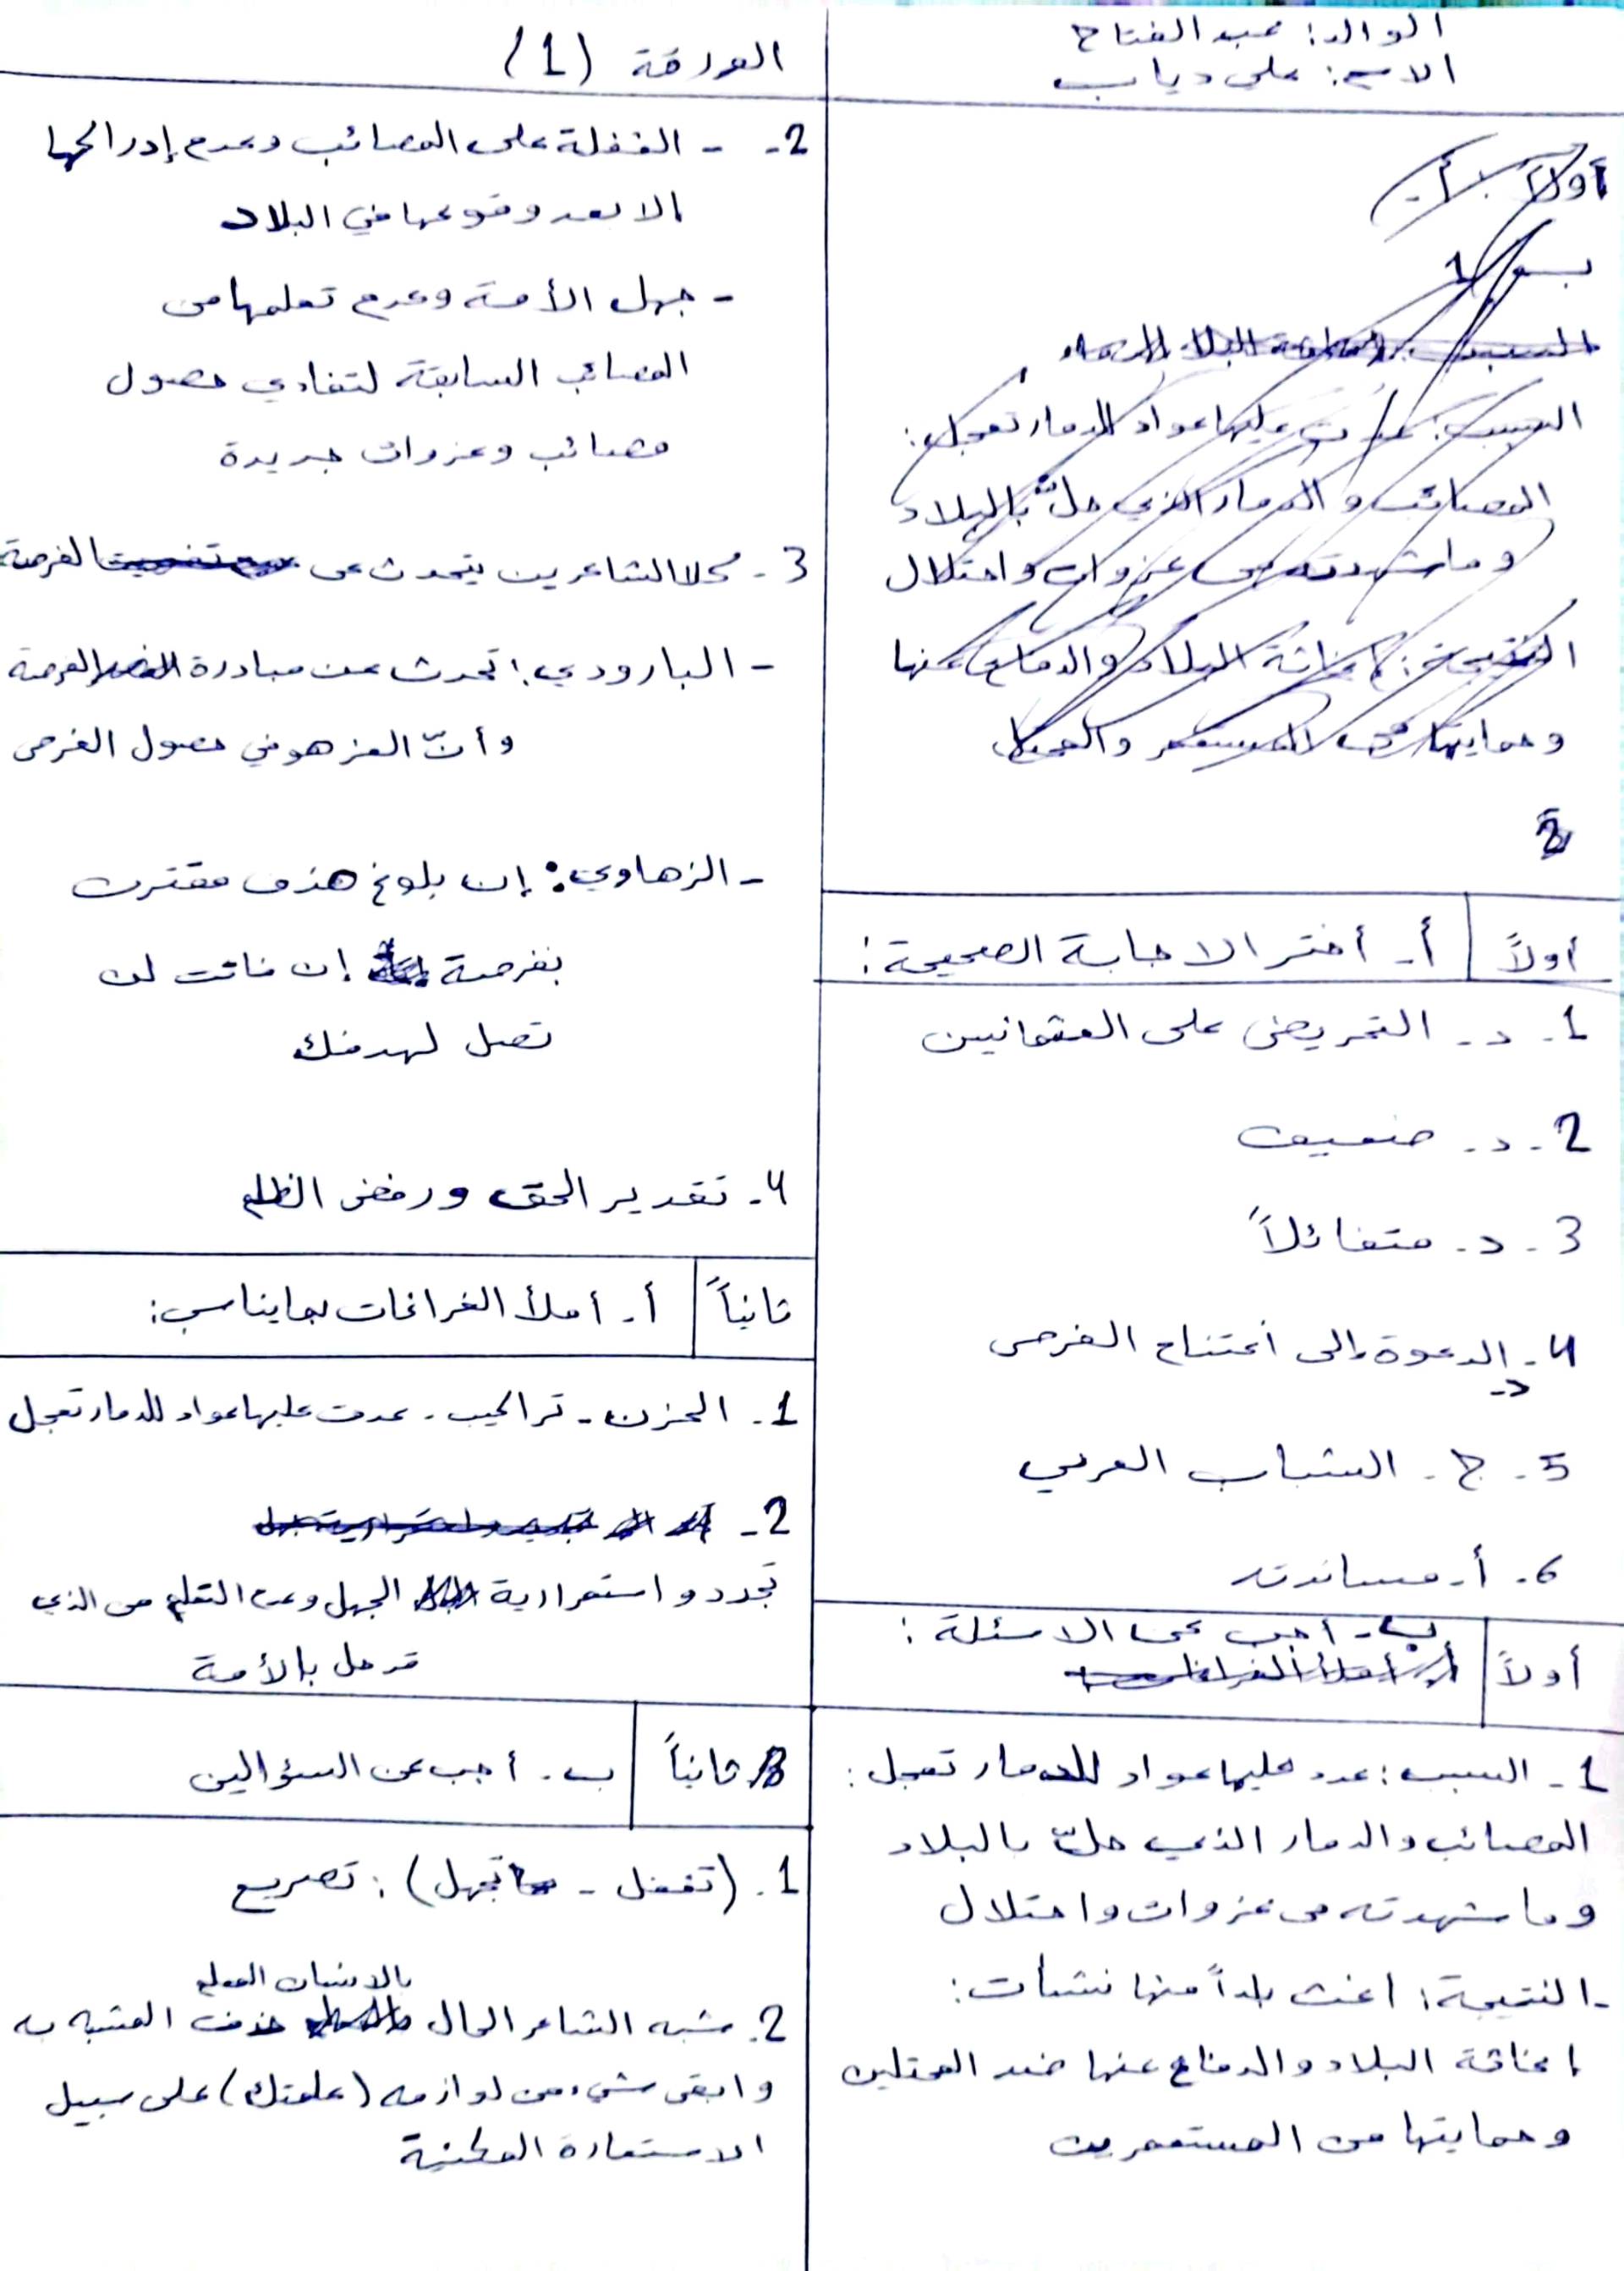 الوالد: عبد الفتاح
الاسم: علي دياب
الورقة (1)
أولاً: أ.
السبب: عدت عليها عواد للدمار تعجل:
المصائب والدمار الذي حلّ بالبلاد
وما شهدته من غزوات واحتلال
النتيجة: إغاثة البلاد والدفاع عنها
وحمايتها من المستعمر
أولاً أ- أختر الاجابة الصحيحة:
1- د- التحريض على العثمانيين
2- د- ضعيف
3- د- متفائلاً
4- د- الدعوة إلى اغتناح الفرص
5- ج- الشباب العربي
6- أ- مساندته
أولاً ب- أجب عن الاسئلة:
أ- أملأ الفراغات
1- السبب: عدد عليها عواد للدمار تعجل:
المصائب والدمار الذي حلّ بالبلاد
وما شهدته من غزوات واحتلال
- النتيجة: اغث بلداً منها نشأت:
إغاثة البلاد والدفاع عنها ضد المحتلين
وحمايتها من المستعمرين
2- - الغفلة على المصائب وعدم إدراكها
إلا بعد وقوعها في البلاد
- جهل الأمة وعدم تعلمها من
المصائب السابقة لتفادي حصول
مصائب وغزوات جديدة
3- كلا الشاعرين يتحدث عن الفرصة
- البارودي: تحدث عن مبادرة الفرصة
وأنّ العز هو في حصول الفرص
- الزهاوي: إن بلوغ هذف مقترن
بفرصة إن فاتت لن
تصل لهدفك
4- تقدير الحق ورفض الظلم
ثانياً أ- أملأ الفراغات بما يناسب:
1- الحزن - تراكيب - عدت عليها عواد للدمار تعجل
2-
تجدد واستمرارية الجهل وعدم التعلم من الذي
قد حل بالأمة
ثانياً ب- أجب عن السؤالين
1- (تغفل - تجهل): تصريع
2- شبه الشاعر الحال بالانسان المعلم حذف المشبه به
وابقى شيء من لوازمه (علمتك) على سبيل
الاستعارة المكنية